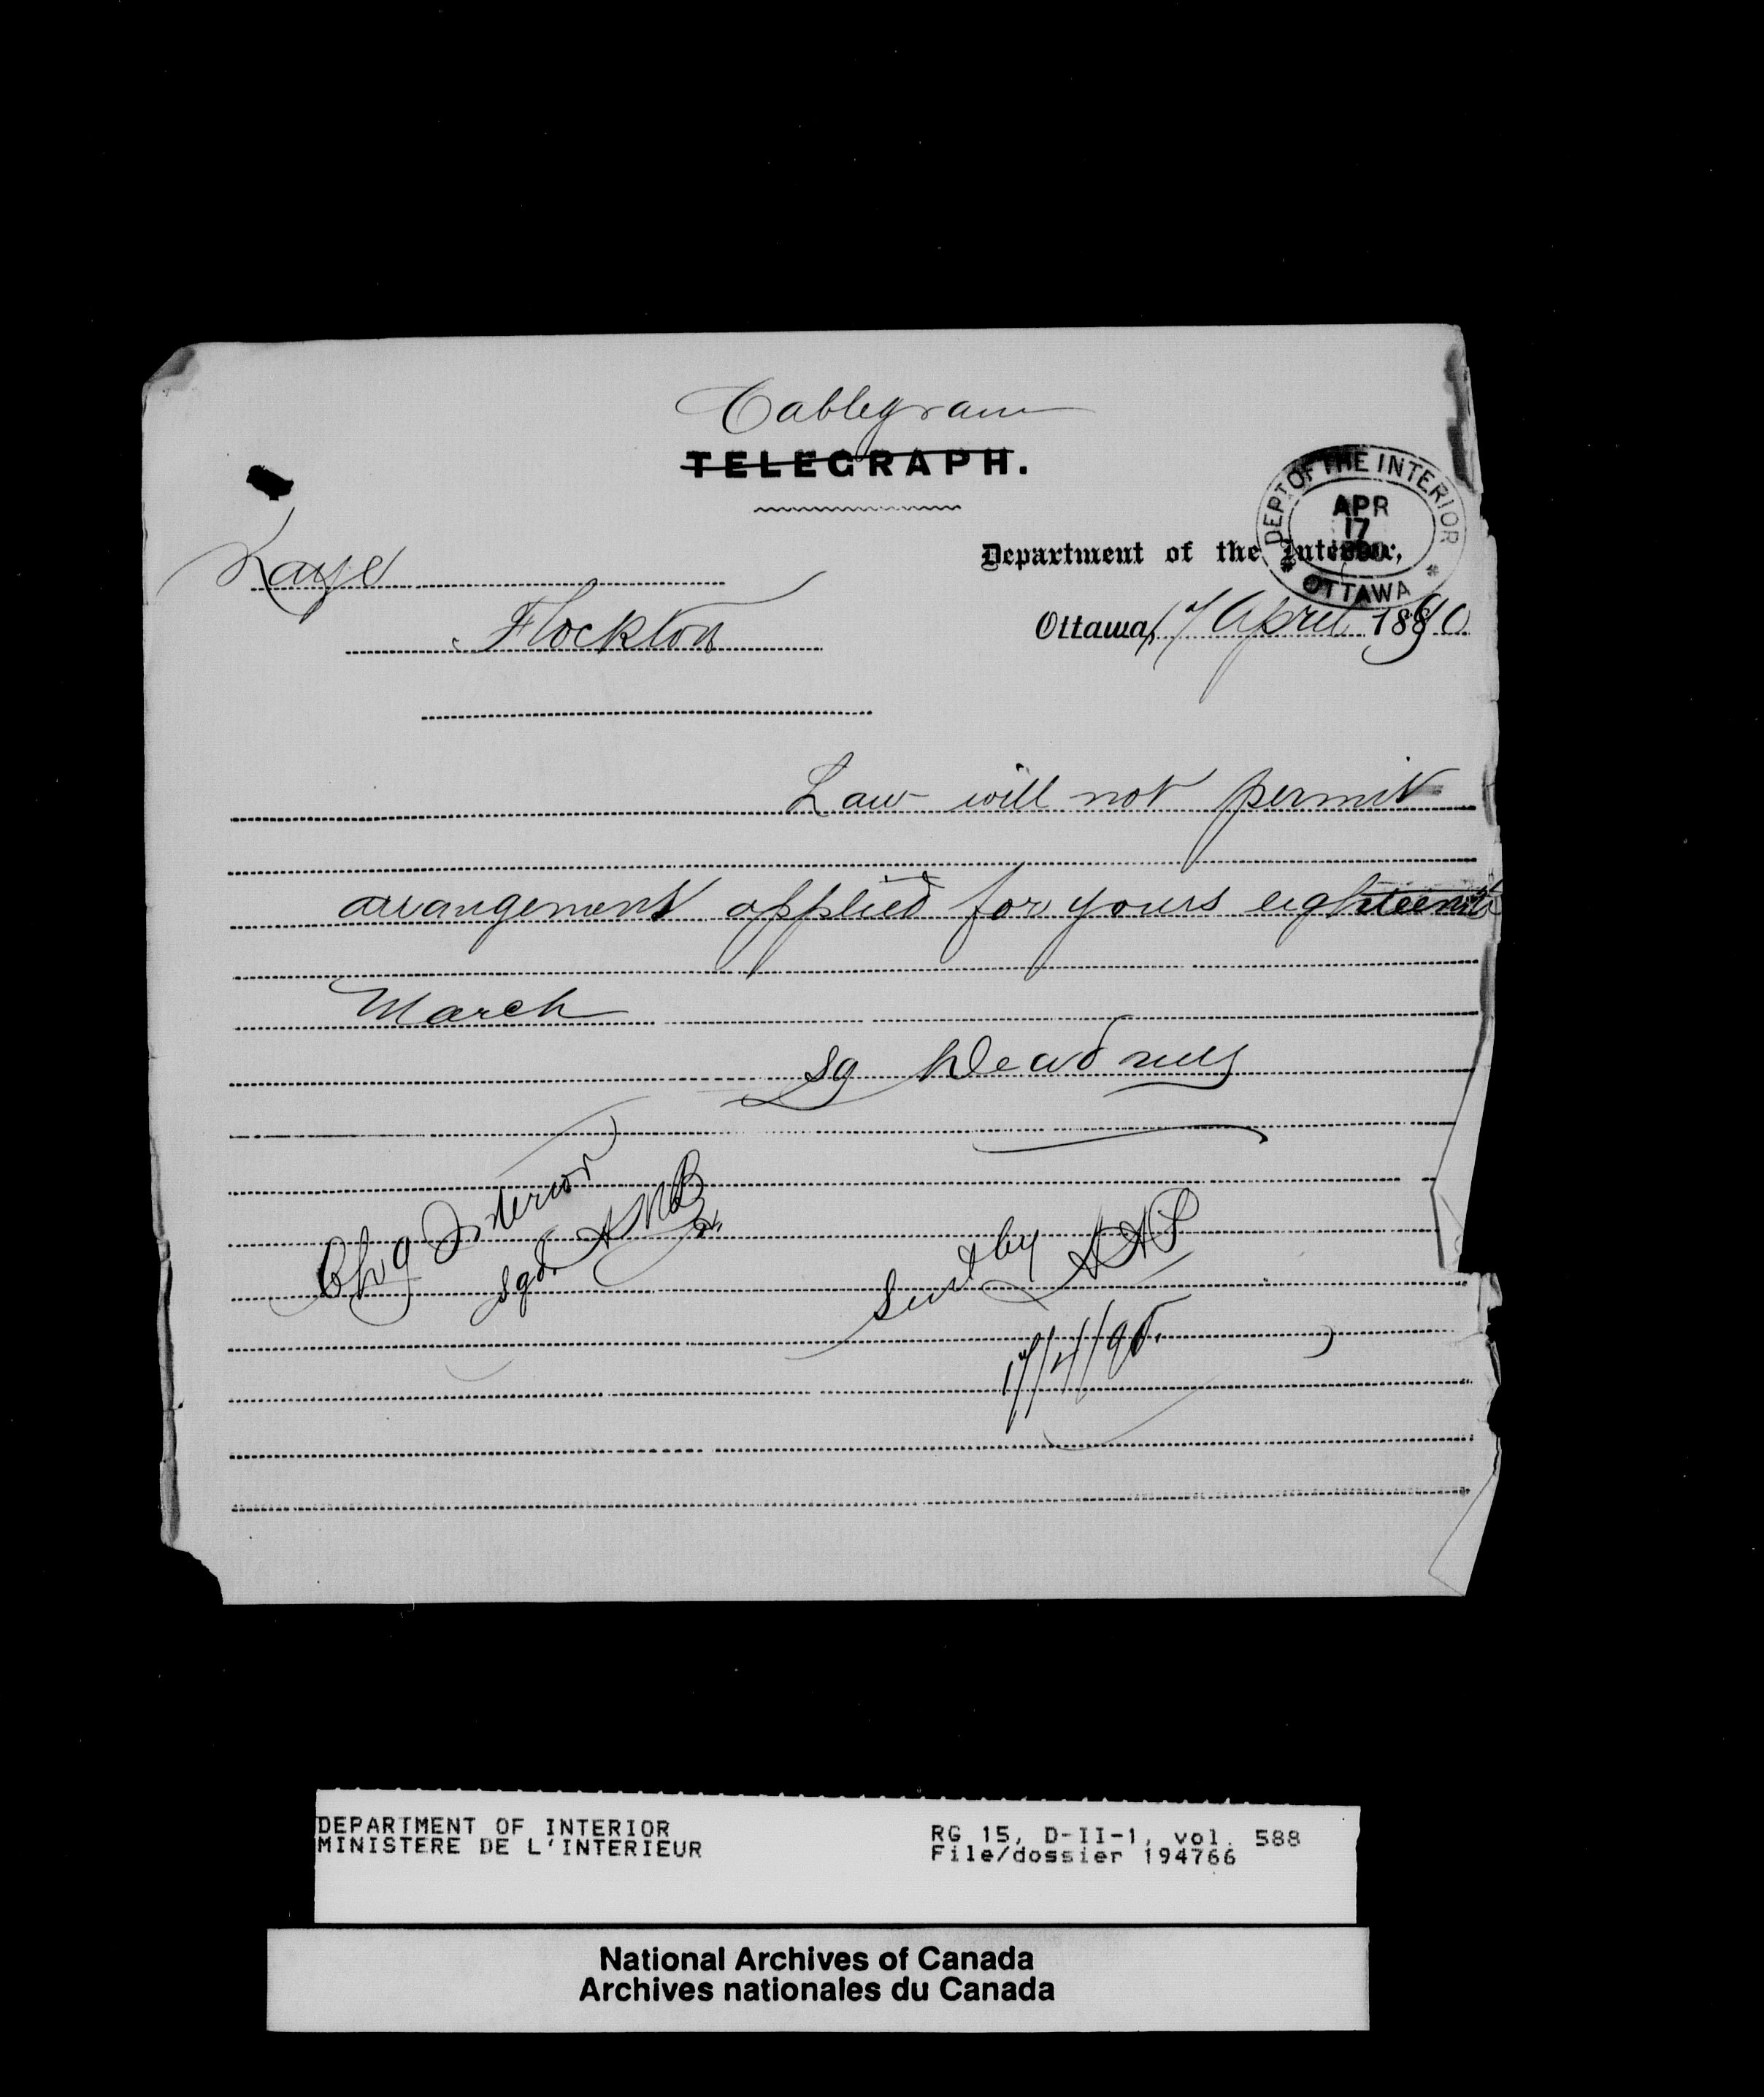 Cablegram
TELEGRAPH.
DEPT OF THE INTERIOR
APR
17
1890
OTTAWA
Department of the Interior,
Kaye
Flockton
Ottawa, 17 April 1890
Law will not permit
arrangement applied for yours eighteenth
March
Sg Dewdney
Chg Interior
Sgd.
Sent by
17/4/90.
DEPARTMENT OF INTERIOR
MINISTERE DE L'INTERIEUR
RG 15, D-II-1, vol. 588
File/dossier 194766
National Archives of Canada
Archives nationales du Canada